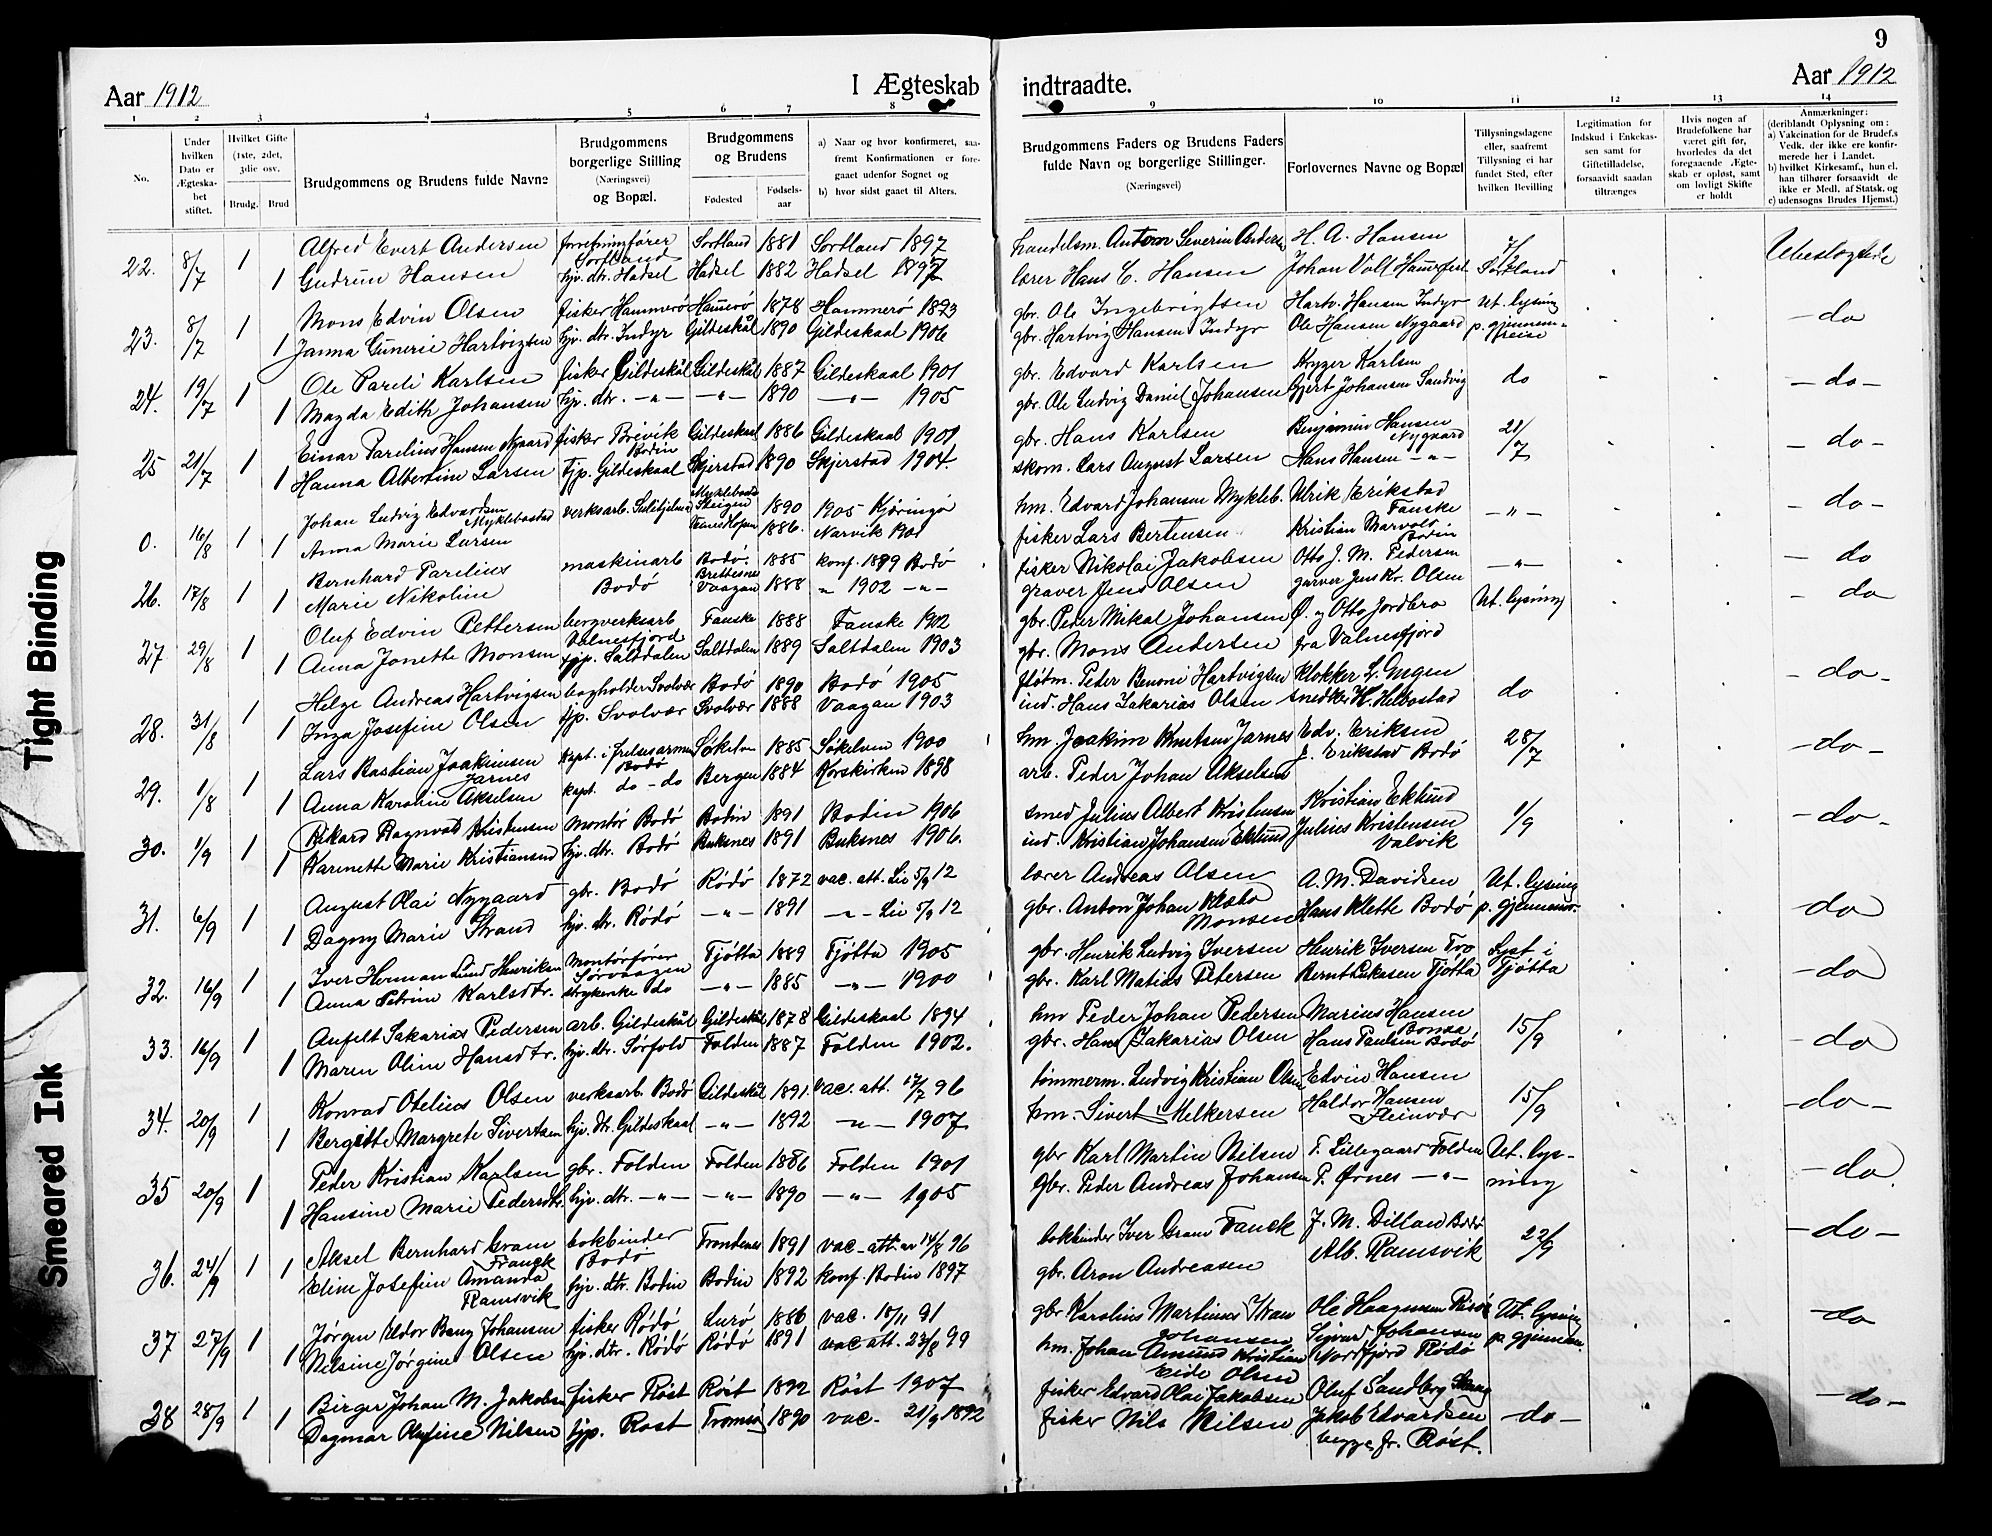 9
Aar 1912
I Ægteskab
indtraadte.
Aar 1912
1 2 3 4 5 6 7 8 9 10 11 12 13 14
No.
Under hvilken Dato er Ægteska-bet stiftet.
Hvilket Gifte (1ste, 2det, 3die osv.
Brudg. Brud
Brudgommens og Brudens fulde Navne
Brudgommens borgerlige Stilling (Næringsvei) og Bopæl.
Brudgommens og Brudens
Fødested
Fødsels-aar
a) Naar og hvor konfirmeret, saa-fremt Konfirmationen er fore-gaaet udenfor Sognet og
b) hvor sidst gaaet til Alters.
Brudgommens Faders og Brudens Faders fulde Navn og borgerlige Stillinger.
(Næringsvei)
Forlovernes Navne og Bopæl
Tillysningsdagene eller, saafremt Tillysning ei har fundet Sted, efter hvilken Bevilling
Legitimation for Indskud i Enkekas-sen samt for Giftetilladelse, forsaavidt saadan tiltrænges
Hvis nogen af Brudefolkene har været gift før, hvorledes da det foregaaende Ægte-skab er opløst, samt om lovligt Skifte er holdt
Anmærkninger: (deriblandt Oplysning om: a) Vakcination for de Brudef.s Vedk. der ikke ere konfir-merede her i Landet. b) hvilket Kirkesamf., hun el. han tilhører forsaavidt de ikke er Medl. af Statsk. og c) udensogns Brudes Hjemst.)
22. 8/7 1 Alfred Evert Andersen forretningsfører Sortland Sortland 1881 Sortland 1897 handelsm. Anton Severin Anders. H. A. Hansen 7/7 Sortland Ubeslægtede
1 Gudrun Hansen hjv. dtr. Hadsel Hadsel 1882 Hadsel 1897 lærer Hans C. Hansen Johan Voll Hammerfest
23. 8/7 1 Mons Edvin Olsen fisker Hammerø Hammerø 1878 Hammerø 1893 gbr. Ole Ingebrigtsen Hartv. Hansen Indyr Ut. lysning - do
1 Janna Gunerie Hartvigsen hjv. dtr. Indyr Gildeskål 1890 Gildeskaal 1906 gbr. Hartvig Hansen Indyr Ole Hansen Nygaard p. gjennem-reise
24. 19/7 1 Ole Pareli Karlsen fisker Gildeskål Gildeskål 1887 Gildeskaal 1901 gbr. Edvard Karlsen Kryger Karlsen do - do -
1 Magda Edith Johansen hjv. dtr. - " - - " - 1890 - " - 1905 gbr. Ole Ludvig Daniel Johansen Gjert Johansen Sandvig
25 21/7 1 Einar Parelius Hansen Nygaard fisker Brevik Bodin Gildeskaal 1886 Gildeskaal 1901 gbr. Hans Karlsen Benjamin Hansen Nygaard 21/7 - do -
1 Hanna Albertine Larsen tjp. Gildeskaal Skjerstad 1890 Skjerstad 1904. skom. Lars August Larsen Hans Hansen - " -
0. 16/8 1 Johan Ludvig Edvardsen Myklebostad verksarb. Sulitjelma Myklebostad Steigen 1890 1905 Kjøringø hm. Edvard Johansen Mykleb. Ulrik Erikstad Fauske - " - - do -
1 Anna Marie Larsen 1886. Narvik 1901 fisker Lars Bertensen Kristian Marvold Bodin
26. 17/8 1 Bernhard Parelius maskinarb Bodø Bodø. 1885 konf. 1899 Bodø fisker Nikolai Jakobsen Otto J. M. Pedersen - " - - do
1 Marie Nikoline Brettesnes Vaagan 1888 " 1902 - " - graver Jens Olsen garver Jens Kr. Olsen
27 29/8 1 Oluf Edvin Pettersen bergverksarb Valnesfjord Fauske 1888 Fauske 1902 gbr. Peder Mikal Johansen Ø. og Otto Jordbro Ut. lysning - do
1 Anna Jonette Monsen tjp. Saltdalen Saltdalen 1889 Saltdalen 1903 gbr. Mons Andersen fra Valnesfjord
28. 31/8 1 Helge Andreas Hartvigsen bogholder Svolvær Bodø 1890 Bodø 1905 fløtm. Peder Benoni Hartvigsen Klokker L. Engen do - do -
1 Inga Josefine Olsen tjp. Svolvær Svolvær 1888 Vaagan 1903 ind. Hans Zakarias Olsen snedker H. Hildostad
29. 1/8 1 Lars Bastian Joakimsen Jarnes kapt. i frelsesarmen Bodø Søkelven 1885 Søkelven 1900 hm Joakim Knutsen Jarnes Edv. Eriksen 28/7 - do -
1 Anna Karoline Akselsen kapt. do - do Bergen 1884 Korskirken 1898 arb. Peder Johan Akselsen J. Erikstad Bodø
30. 1/9 1 Rikard Ragnvald Kristensen Montør Bodø Bodin 1891 Bodin 1906 smed Julius Albert Kristensen Kristian Eklund 1/9 - do -
1 Harmette Marie Kristiansen hjv. dtr. Bodø Buksnes 1891 Buksnes 1906. ind. Kristian Johansen Eklund Julius Kristensen Valvik
31. 6/9 1 August Olai Nygaard gbr. Bodø Rødø 1872 vac. att. Liv 5/9 12 lærer Andreas Olsen A. M. Davidsen Ut. lysning - do
1 Dagny Marie Strand hjv. dtr. Rødø - " - 1891 - " - Liv 5/9 12 gbr. Anton Johan Klæbo Monsen Hans Klette Bodø p. gjennemr.
32. 16/9 1 Iver Herman Lund Henriksen Montørfører Sørvaagen Tjøtta 1889 Tjøtta 1905 gbr. Henrik Ludvig Iversen Henrik Iversen Tro Lyst i - do
1 Anna Petrine Karlsdtr. strykerske do - " - 1885 - " - 1900 gbr. Karl Matias Petersen Bernt Lukasen Tjøtta Tjøtta
33. 16/9 1 Anfelt Sakarias Pedersen arb. Gildeskål Gildeskål 1878 Gildeskaal 1894 hm Peder Johan Pedersen Marius Hansen Bonsa, 15/9 - do
1 Maren Oline Hansdtr. hjv. dtr. Sørfold Folden 1887 Folden 1902. gbr. Hans Zakarias Olsen Hans Paulsen Bodø
34. 20/9 1 Konrad Otelius Olsen verksarb. Bodø Gildeskål 1891. vac. att. 17/7 96 tømmerm. Ludvig Kristian Olsen Edvin Hansen 15/9 - do -
1 Bergitte Margrete Sivertsen hjv. dtr. Gildeskaal - " - 1892 - " - 1907 hm. Sivert Melkersen Haldor Hansen Fleinvær
35 20/9 1 Peder Kristian Karlsen gbr. Folden Folden 1886 Folden 1901 gbr Karl Martin Nilsen T. Lillegaard Folden Ut. lys- - do
1 Hansine Marie Pedersdtr. hjv. dtr. - " - - " - 1890 - " - 1905 gbr. Peder Andreas Johansen P. Ørnes - " - ning
36. 24/9 1 Aksel Bernhard Gram Franck bokbinder Bodø Trondenes 1891 vac-att. av 14/8 96 bokbinder Iver Gram Fanck J. M. Dillan Bodø 22/9 - do -
1 Eline Josefine Amanda Ramsvik hjv. dtr. Bodin Bodin 1892 konf. Bodin 1897 gbr. Aron Andreasen Alb. Ramsvik
37 27/9 1 Jørgen Eldor Bang Johansen fisker Rødø Lurø 1886 vac. 10/11 91 gbr Karolius Martinus Johansen Ole Haagensen Ut. lysning - do
1 Nilsine Jørgine Olsen hjv. dtr. Rødø Rødø 1891 vac att. 23/8 99 hm. Johan Amund Kristian Eide Olsen Sigvard Johansen Nordfjord Rødø p. gjennem.
38 28/9 1 Birger Johan M. Jakobsen fisker Røst Røst 1892 Røst 1907 fisker Edvard Olai Jakobsen Oluf Sandberg - do - - do -
1 Dagmar Olufine Nilsen tjp. Røst Tromsø 1890 vac. 21/9 1892 fisker Nils Nilsen Jakob Edvardsen begge fr. Røst.
Tight Binding
Smeared Ink